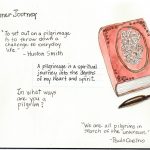 nner Journey
"To set out on a pilgrimage
is to throw down a
challenge to everyday
life."
- Huston Smith
A pilgrimage is a spiritual
journey into the depths
of my heart and spirit.
In what
ways are
you a
pilgrim?
"We are all pilgrims in
search of the unknown."
-Paulo Coelho